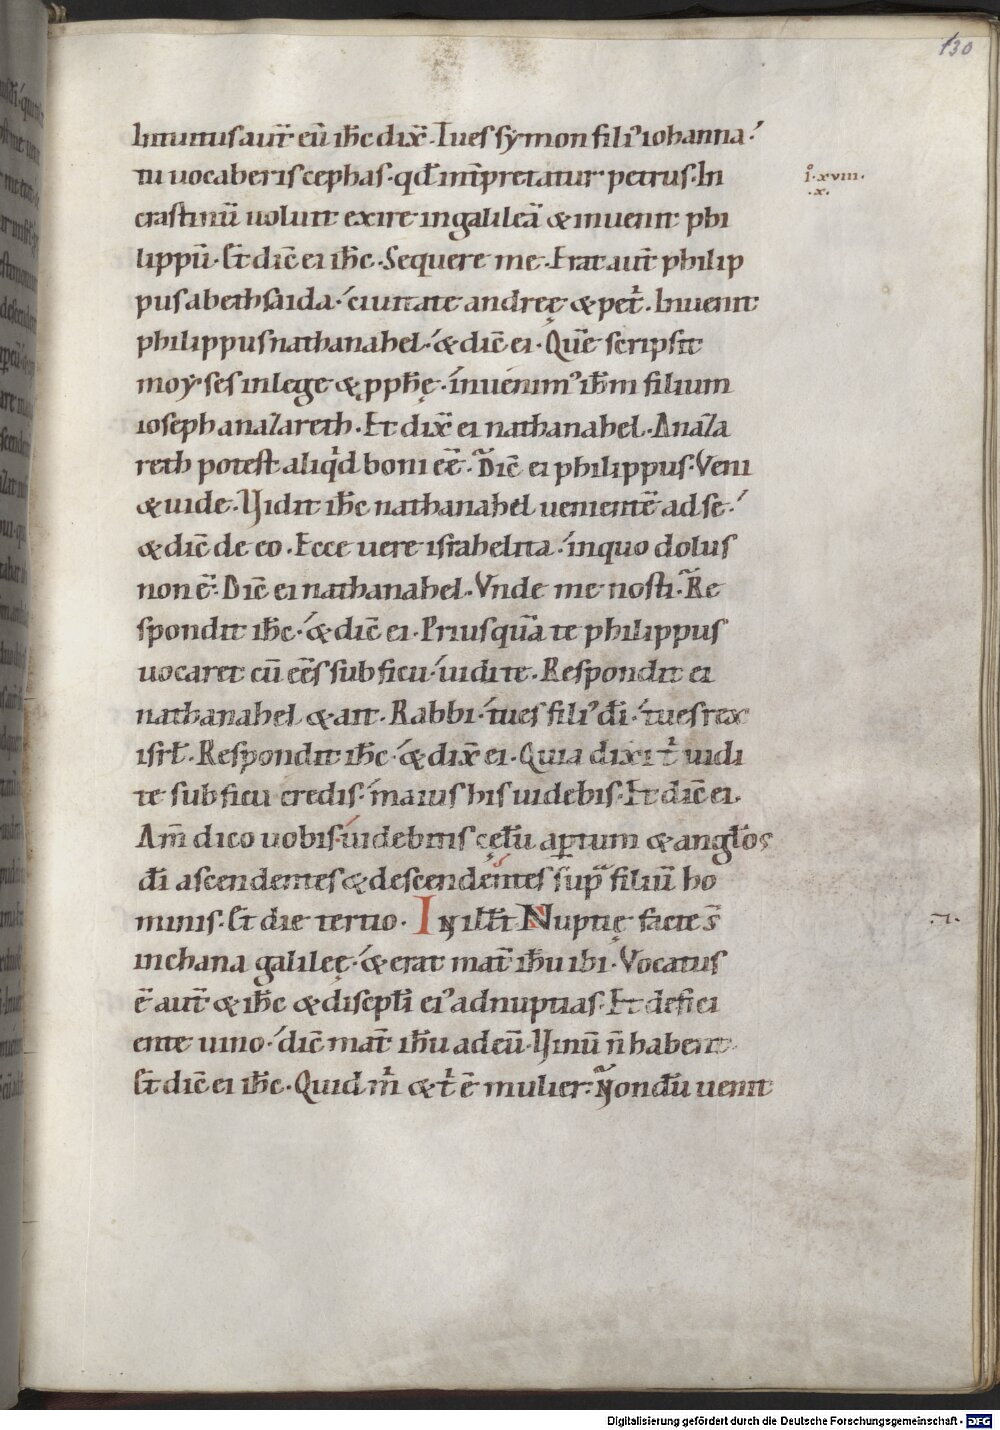 130
Intuitus aut̄ eū ih̄c dix̄. Tu es symon filiꝰ iohanna.
tu uocaberis cephas. qđ int̄pretatur petrus. In
i͛. xviii.
.x.
crastinū uoluit exire in galileā & inuenit phi
lippū. Et dic̄ ei ih̄c. Sequere me. Erat aut̄ philip
pus a bethsaida. ciuitate andreę & pet͛. Inuenit
philippus nathanahel. & dic̄ ei. Quē scripsit
moyses in lege & pph̄ę. inuenimꝰ ih̄m filium
ioseph a nazareth. Et dix̄ ei nathanahel. A naza
reth potest aliq͛d boni eē. Dic̄ ei philippus. Veni
& uide. Vidit ih̄c nathanahel uenientē ad se.
& dic̄ de eo. Ecce uere israhelita. in quo dolus
non ē. Dic̄ ei nathanahel. Vnde me nosti. Re
spondit ih̄c. & dic̄ ei. Priusquā te philippus
uocaret cū eēs sub ficu. uidi te. Respondit ei
nathanahel & ait. Rabbi. tu es filiꝰ dī. tu es rex
isrł. Respondit ih̄c. & dix̄ ei. Quia dixi t͛ uidi
te sub ficu credis. maius his uidebis. Et dic̄ ei.
Am̄ dico uobis. uidebitis cęlū aꝑtum & angłos
dī ascendentes & descendentes supͣ filiū ho
minis. Et die tertio. IN illī Nuptię facte s̄
.⁊.
in chana galileę. & erat mat̄ ih̄u ibi. Vocatus
ē aut̄ & ih̄c & discipłi eiꝰ ad nuptias. Et defici
ente uino. dic̄ mat̄ ih̄u ad eū. Vinū n̄ habent.
Et dic̄ ei ih̄c. Quid m͛ & t͛ ē mulier. Nondū uenit
Digitalisierung gefördert durch die Deutsche Forschungsgemeinschaft - DFG